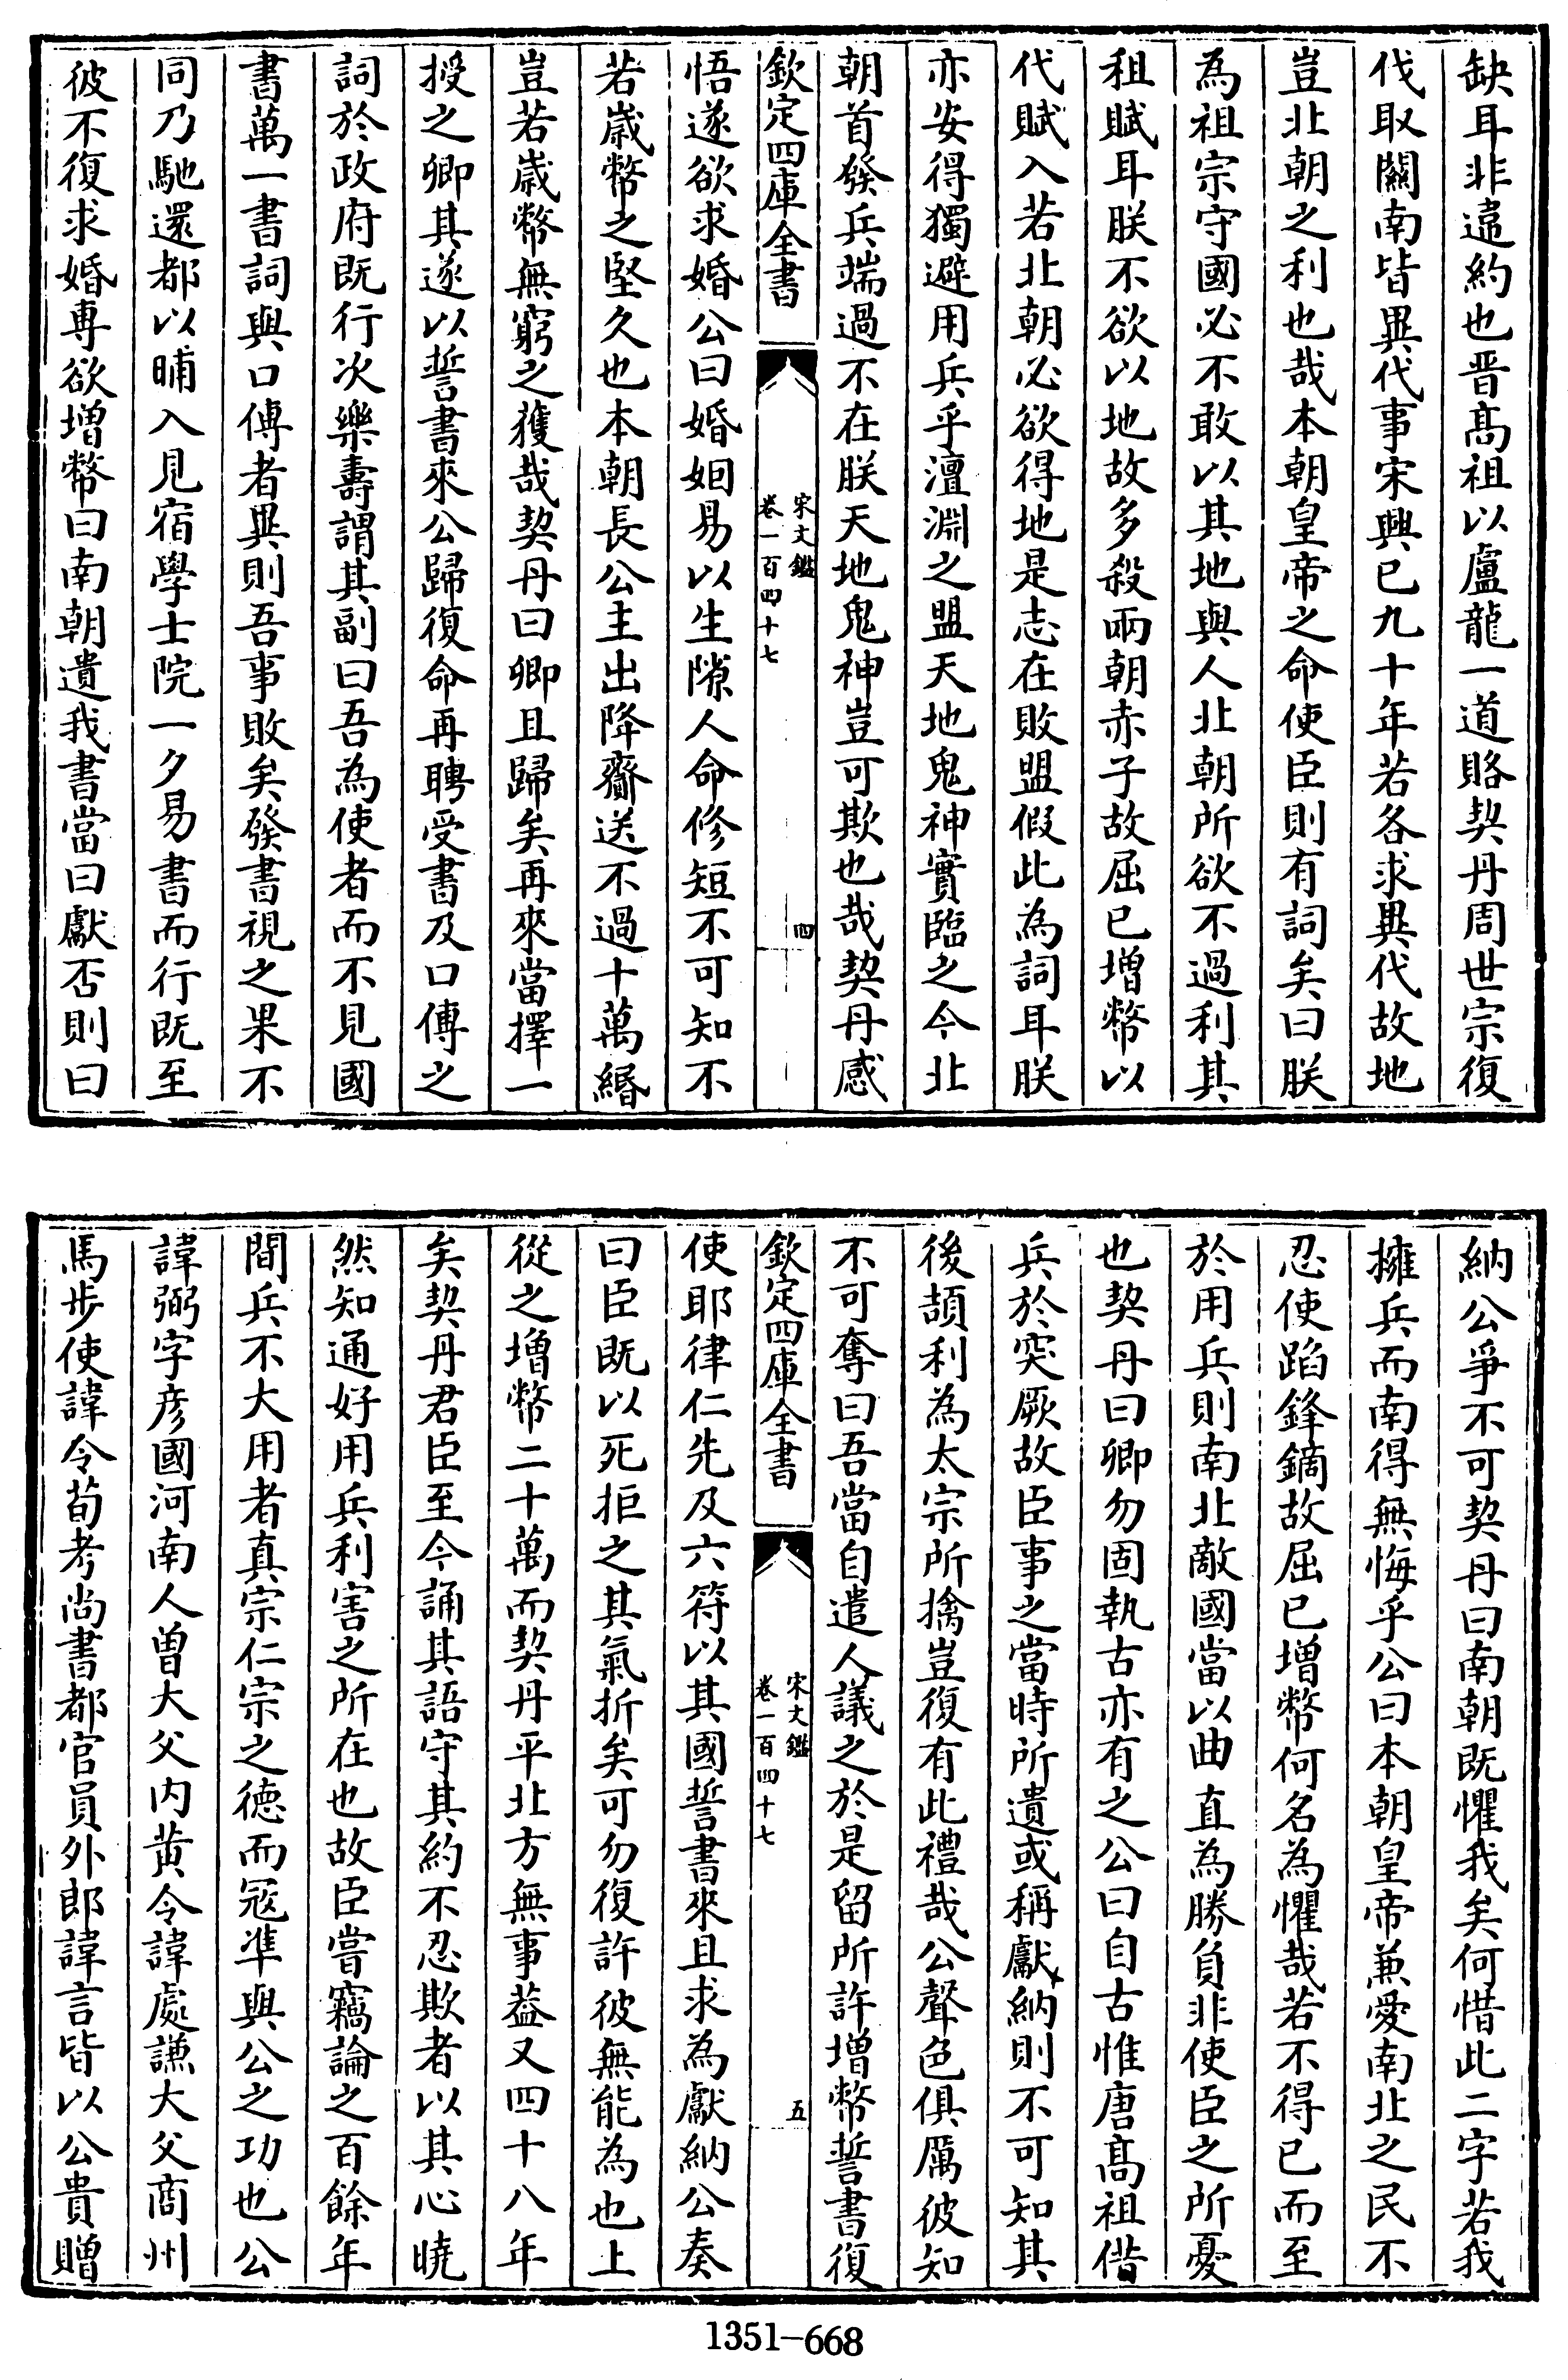 缺耳非違約也晉髙祖以盧龍一道賂契丹周世宗復
伐取關南皆異代事宋興已九十年若各求異代故地
豈北朝之利也哉本朝皇帝之命使臣則有詞矣曰朕
為祖宗守國必不敢以其地與人北朝所欲不過利其
租賦耳朕不欲以地故多殺兩朝赤子故屈已增幣以
代賦入若北朝必欲得地是志在敗盟假此為詞耳朕
亦安得獨避用兵乎澶淵之盟天地鬼神實臨之今北
朝首發兵端過不在朕天地鬼神豈可欺也哉契丹感
欽定四庫全書
宋文鑑
卷一百四十七
四
悟遂欲求婚公曰婚姻易以生隙人命修短不可知不
若歲幣之堅久也本朝長公主出降齎送不過十萬緡
豈若歲幣無窮之獲哉契丹曰卿且歸矣再來當擇一
授之卿其遂以誓書來公歸復命再聘受書及口傳之
詞於政府既行次樂壽謂其副曰吾為使者而不見國
書萬一書詞與口傳者異則吾事敗矣發書視之果不
同乃馳還都以晡入見宿學士院一夕易書而行既至
彼不復求婚專欲增幣曰南朝遺我書當曰獻否則曰
納公爭不可契丹曰南朝既懼我矣何惜此二字若我
擁兵而南得無悔乎公曰本朝皇帝兼愛南北之民不
忍使蹈鋒鏑故屈已增幣何名為懼哉若不得已而至
於用兵則南北敵國當以曲直為勝負非使臣之所憂
也契丹曰卿勿固執古亦有之公曰自古惟唐髙祖借
兵於突厥故臣事之當時所遺或稱獻納則不可知其
後頡利為太宗所擒豈復有此禮哉公聲色俱厲彼知
不可奪曰吾當自遣人議之於是留所許增幣誓書復
欽定四庫全書
宋文鑑
卷一百四十七
五
使耶律仁先及六符以其國誓書來且求為獻納公奏
曰臣既以死拒之其氣折矣可勿復許彼無能為也上
從之增幣二十萬而契丹平北方無事葢又四十八年
矣契丹君臣至今誦其語守其約不忍欺者以其心曉
然知通好用兵利害之所在也故臣嘗竊論之百餘年
間兵不大用者真宗仁宗之徳而冦凖與公之功也公
諱弼字彥國河南人曾大父内黄令諱處謙大父商州
馬步使諱令荀考尚書都官員外郎諱言皆以公貴贈
1351-668